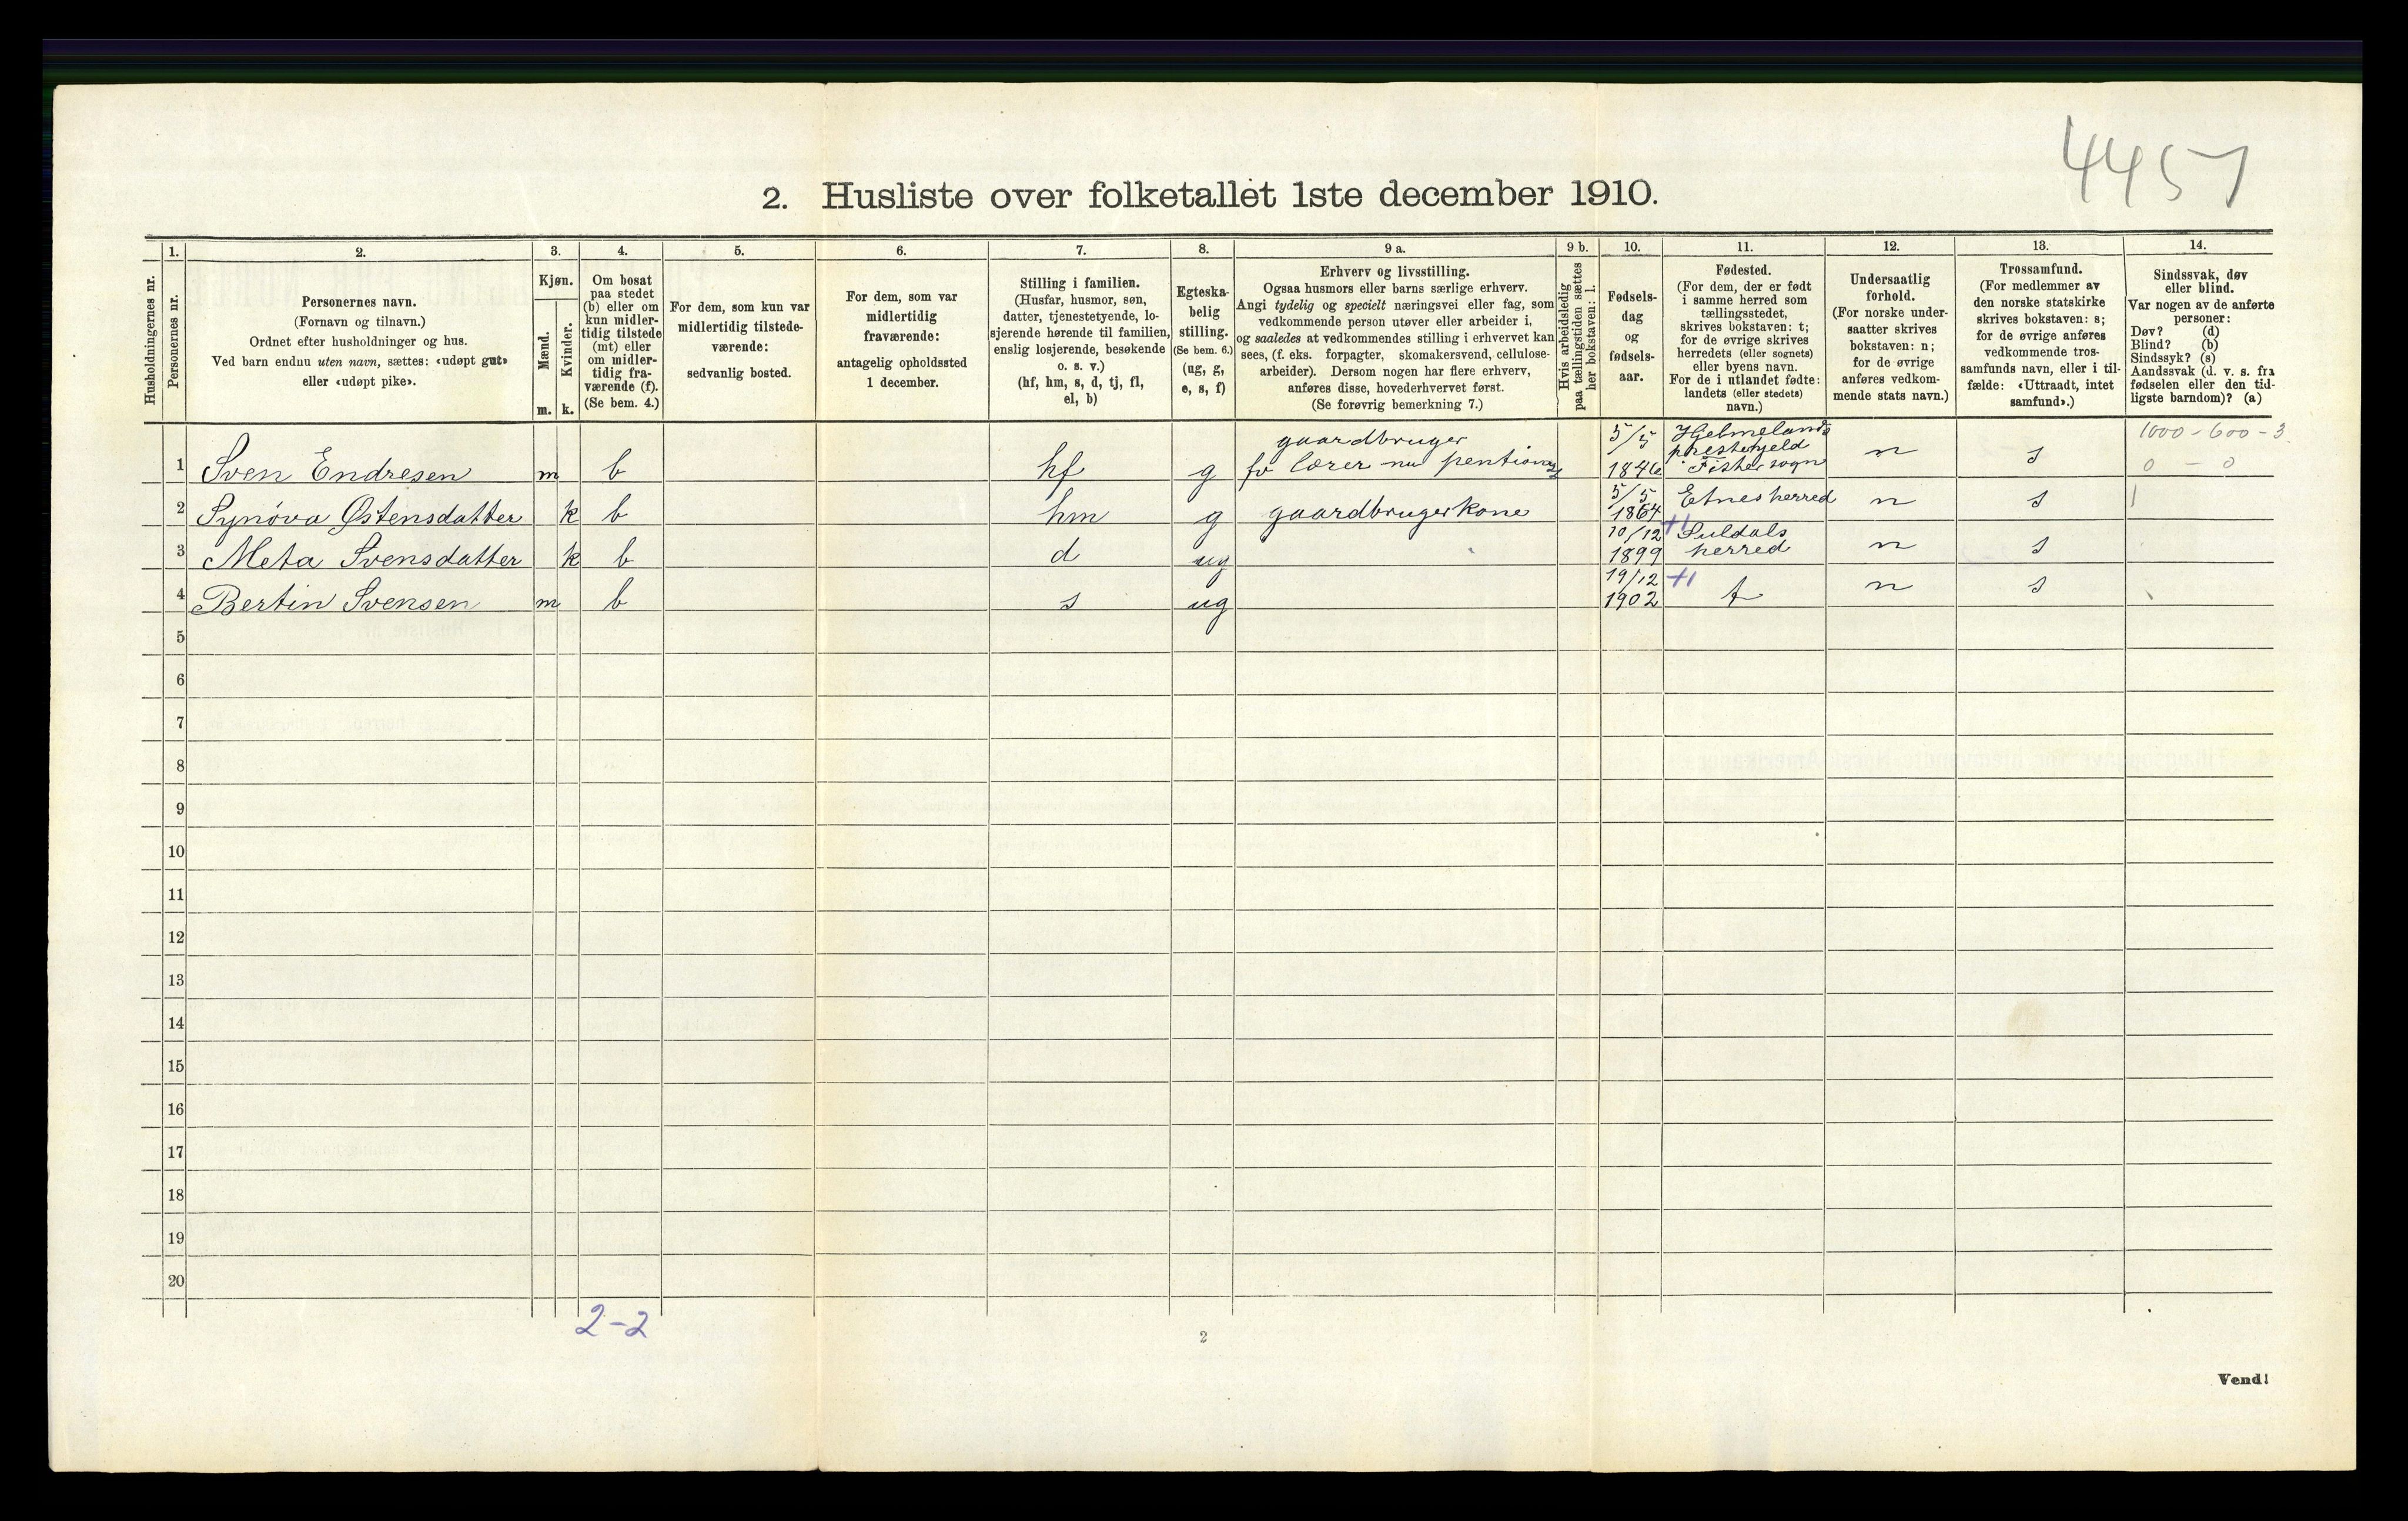 4457
2. Husliste over folketallet 1ste december 1910.
Husholdningernes nr.
1.
Personernes nr.
2.
Personernes navn.
(Fornavn og tilnavn.)
Ordnet efter husholdninger og hus.
Ved barn endnu uten navn, sættes: «udøpt gut»
eller «udøpt pike».
3.
Kjøn.
Mænd.
Kvinder.
m. k.
4.
Om bosat
paa stedet
(b) eller om
kun midler-
tidig tilstede
(mt) eller
om midler-
tidig fra-
værende (f).
(Se bem. 4.)
5.
For dem, som kun var
midlertidig tilstede-
værende:
sedvanlig bosted.
6.
For dem, som var
midlertidig
fraværende:
antagelig opholdssted
1 december.
7.
Stilling i familien.
(Husfar, husmor, søn,
datter, tjenestetyende, lo-
sjerende hørende til familien,
enslig losjerende, besøkende
o. s. v.)
(hf, hm, s, d, tj, fl,
el, b)
8.
Egteska-
belig
stilling.
(Se bem. 6.)
(ug, g,
e, s, f)
9 a.
Erhverv og livsstilling.
Ogsaa husmors eller barns særlige erhverv.
Angi tydelig og specielt næringsvei eller fag, som
vedkommende person utøver eller arbeider i,
og saaledes at vedkommendes stilling i erhvervet kan
sees, (f. eks. forpagter, skomakersvend, cellulose-
arbeider). Dersom nogen har flere erhverv,
anføres disse, hovederhvervet først.
(Se forøvrig bemerkning 7.)
9 b.
Hvis arbeidsledig
paa tællingstiden sættes
her bokstaven: l.
10.
Fødsels-
dag
og
fødsels-
aar.
11.
Fødested.
(For dem, der er født
i samme herred som
tællingsstedet,
skrives bokstaven: t;
for de øvrige skrives
herredets (eller sognets)
eller byens navn.
For de i utlandet fødte:
landets (eller stedets)
navn.)
12.
Undersaatlig
forhold.
(For norske under-
saatter skrives
bokstaven: n;
for de øvrige
anføres vedkom-
mende stats navn.)
13.
Trossamfund.
(For medlemmer av
den norske statskirke
skrives bokstaven: s;
for de øvrige anføres
vedkommende tros-
samfunds navn, eller i til-
fælde: «Uttraadt, intet
samfund».)
14.
Sindssvak, døv
eller blind.
Var nogen av de anførte
personer:
Døv? (d)
Blind? (b)
Sindssyk? (s)
Aandssvak (d. v. s. fra
fødselen eller den tid-
ligste barndom)? (a)
gaardbruger 5/5 Hjelmelands 1000 - 600 - 3
prestegjeld
1 Sven Endresen m b hf g fv lærer nu 1846 Fister sogn n s 0 - 0
2 Synöva Østensdatter k b hm g gaardbrugerkone 5/5 1864 Etnes herred n s
3 Meta Svensdatter k b d ug 10/12 1899 +1 Suldals herred n s
4 Bertin Svensen m b s ug 19/12 1902 +1 t n s
5
6
7
8
9
10
11
12
13
14
15
16
17
18
19
20
2-2
2
Vend!